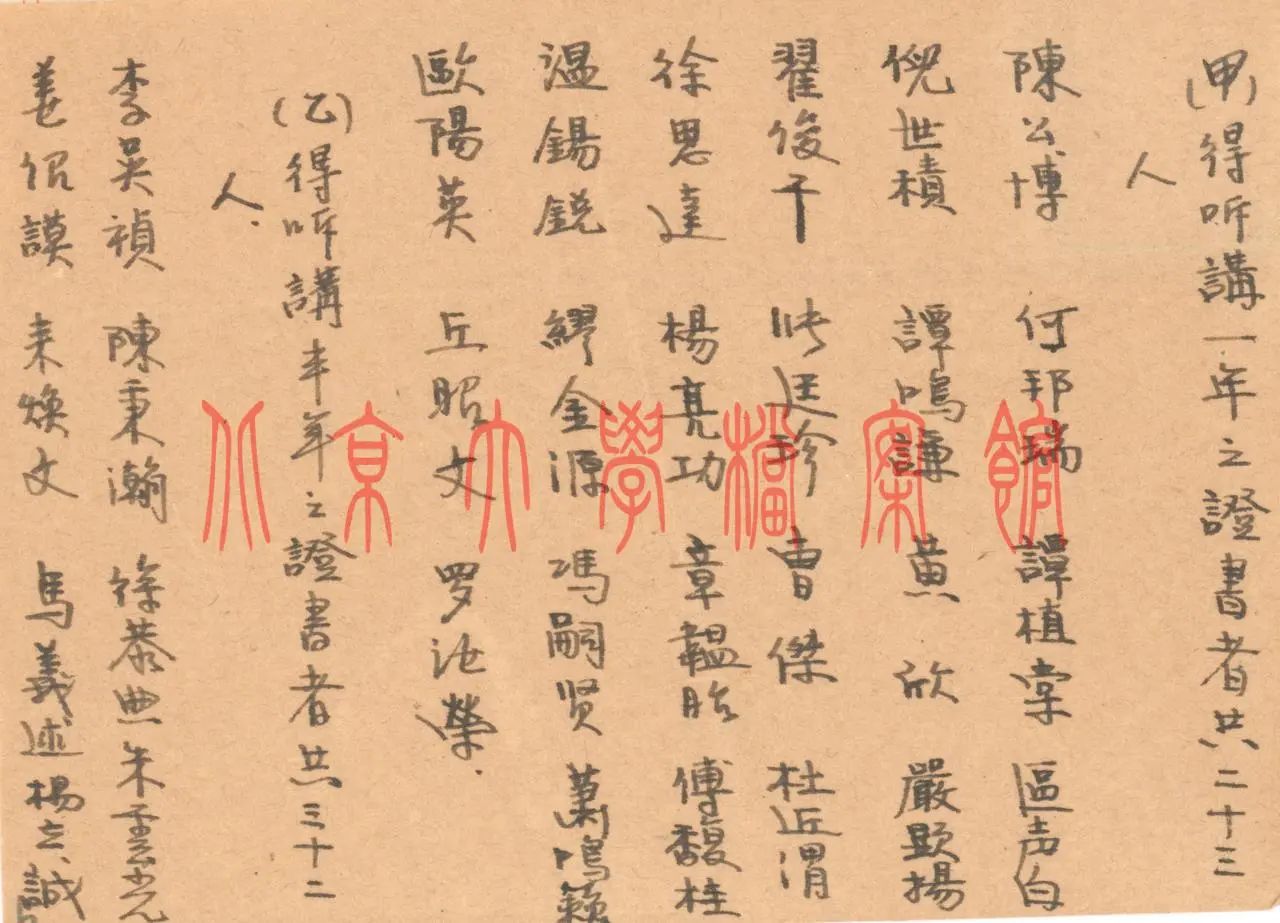 (甲)得听講一年之證書者共二十三
人
陳公博 何邦瑞 譚植棠 區声白
倪世積 譚鳴謙 黄欣 嚴顕揚
翟俊千 张廷珍 曹傑 杜近渭
徐思達 楊亮功 章韞胎 傅馥桂
温錫鋭 繆金源 馮嗣贤 蕭鳴籟
歐陽英 丘昭文 罗沚縈.
(乙)得听講半年之證書者共三十二
人.
李吳禎 陳秉瀚 徐恭典 朱
姜绍謨 耒焕文 馬義述 楊立誠
北京大學檔案館